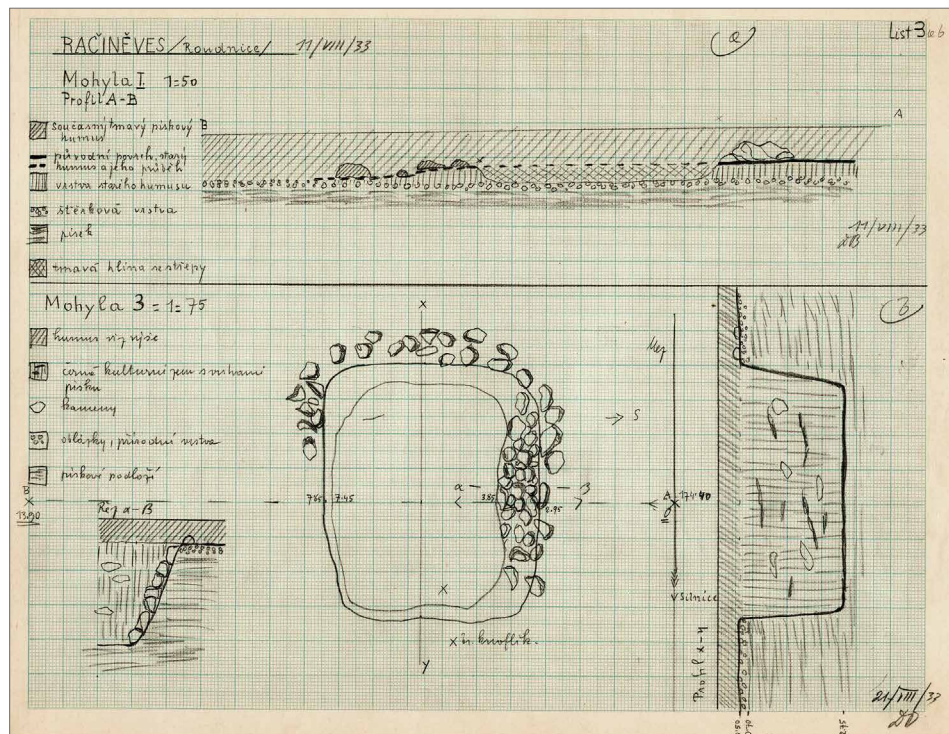 RAČINĚVES /Roudnice/ 11/VIII/33
List 3
Mohyla I. 1=50
Profil A-B
současný tmavý pískový
humus
původní povrch, starý
humus a jeho průběh
vrstva starého humusu
štěrková vrstva
písek
tmavá hlína se střepy
B
A
a
11/VIII/33
Mohyla 3 = 1=75
humus viz výše
černá kulturní zem s vrstvami
písku
kameny
oblázky, přírodní vrstva
pískové podloží
B
13.90
Řez a-B
x
S
a
B
7.85
7.45
3.85
2.95
A
17.40
0=11
x
x zn. knoflík.
y
Mez
Silnice
Profil x-y
B
21/VIII/33